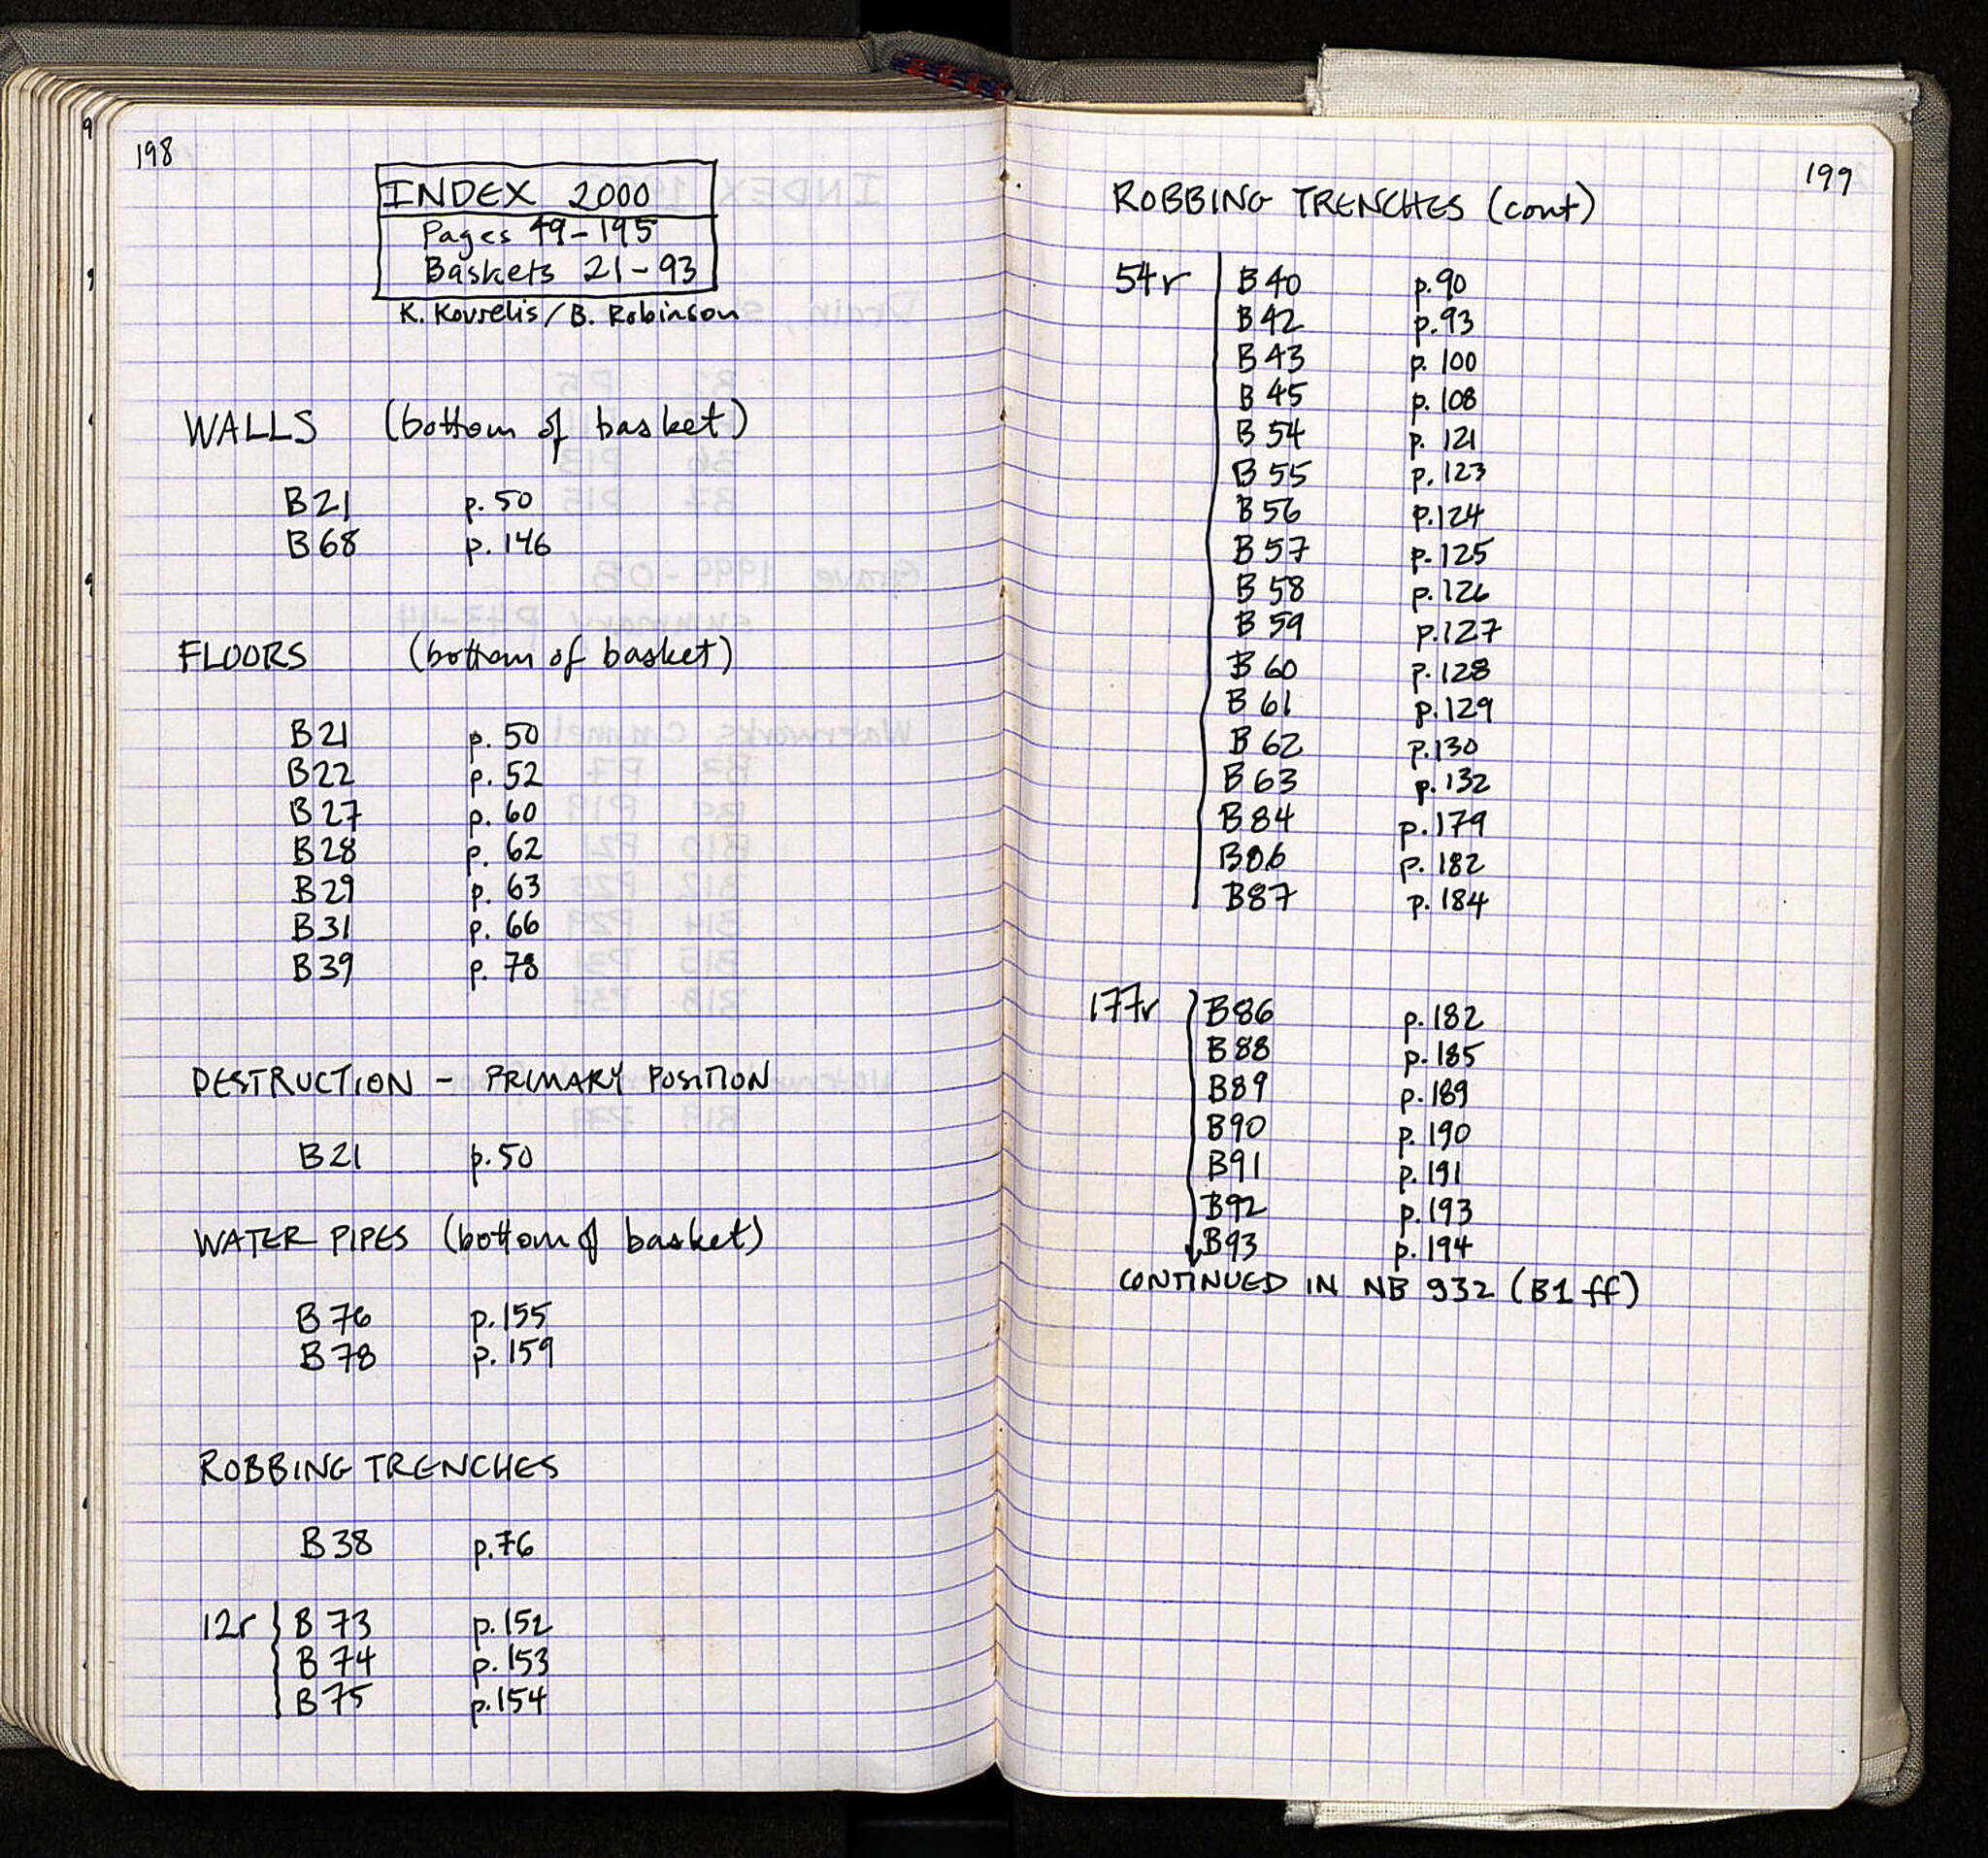 198
INDEX 2000
Pages 49-195
Baskets 21-93
K. Kourelis/B. Robinson
WALLS (bottom of basket)
B21 p. 50
B68 p. 146
FLOORS (bottom of basket)
B21 p. 50
B22 p. 52
B27 p. 60
B28 p. 62
B29 p. 63
B31 p. 66
B39 p. 78
DESTRUCTION - PRIMARY POSITION
B21 p.50
WATER PIPES (bottom of basket)
B76 p.155
B78 p.159
ROBBING TRENCHES
B38 p.76
12r B73 p.152
B74 p.153
B75 p.154
199
ROBBING TRENCHES (cont)
54r B40 p.90
B42 p.93
B43 p. 100
B45 p. 108
B54 p. 121
B55 p. 123
B56 p.124
B57 p.125
B58 p.126
B59 p.127
B60 p.128
B61 p.129
B62 p.130
B63 p.132
B84 p.179
B86 p. 182
B87 p. 184
177r B86 p.182
B88 p.185
B89 p.189
B90 p. 190
B91 p.191
B92 p.193
B93 p. 194
CONTINUED IN NB 932 (B1 ff)